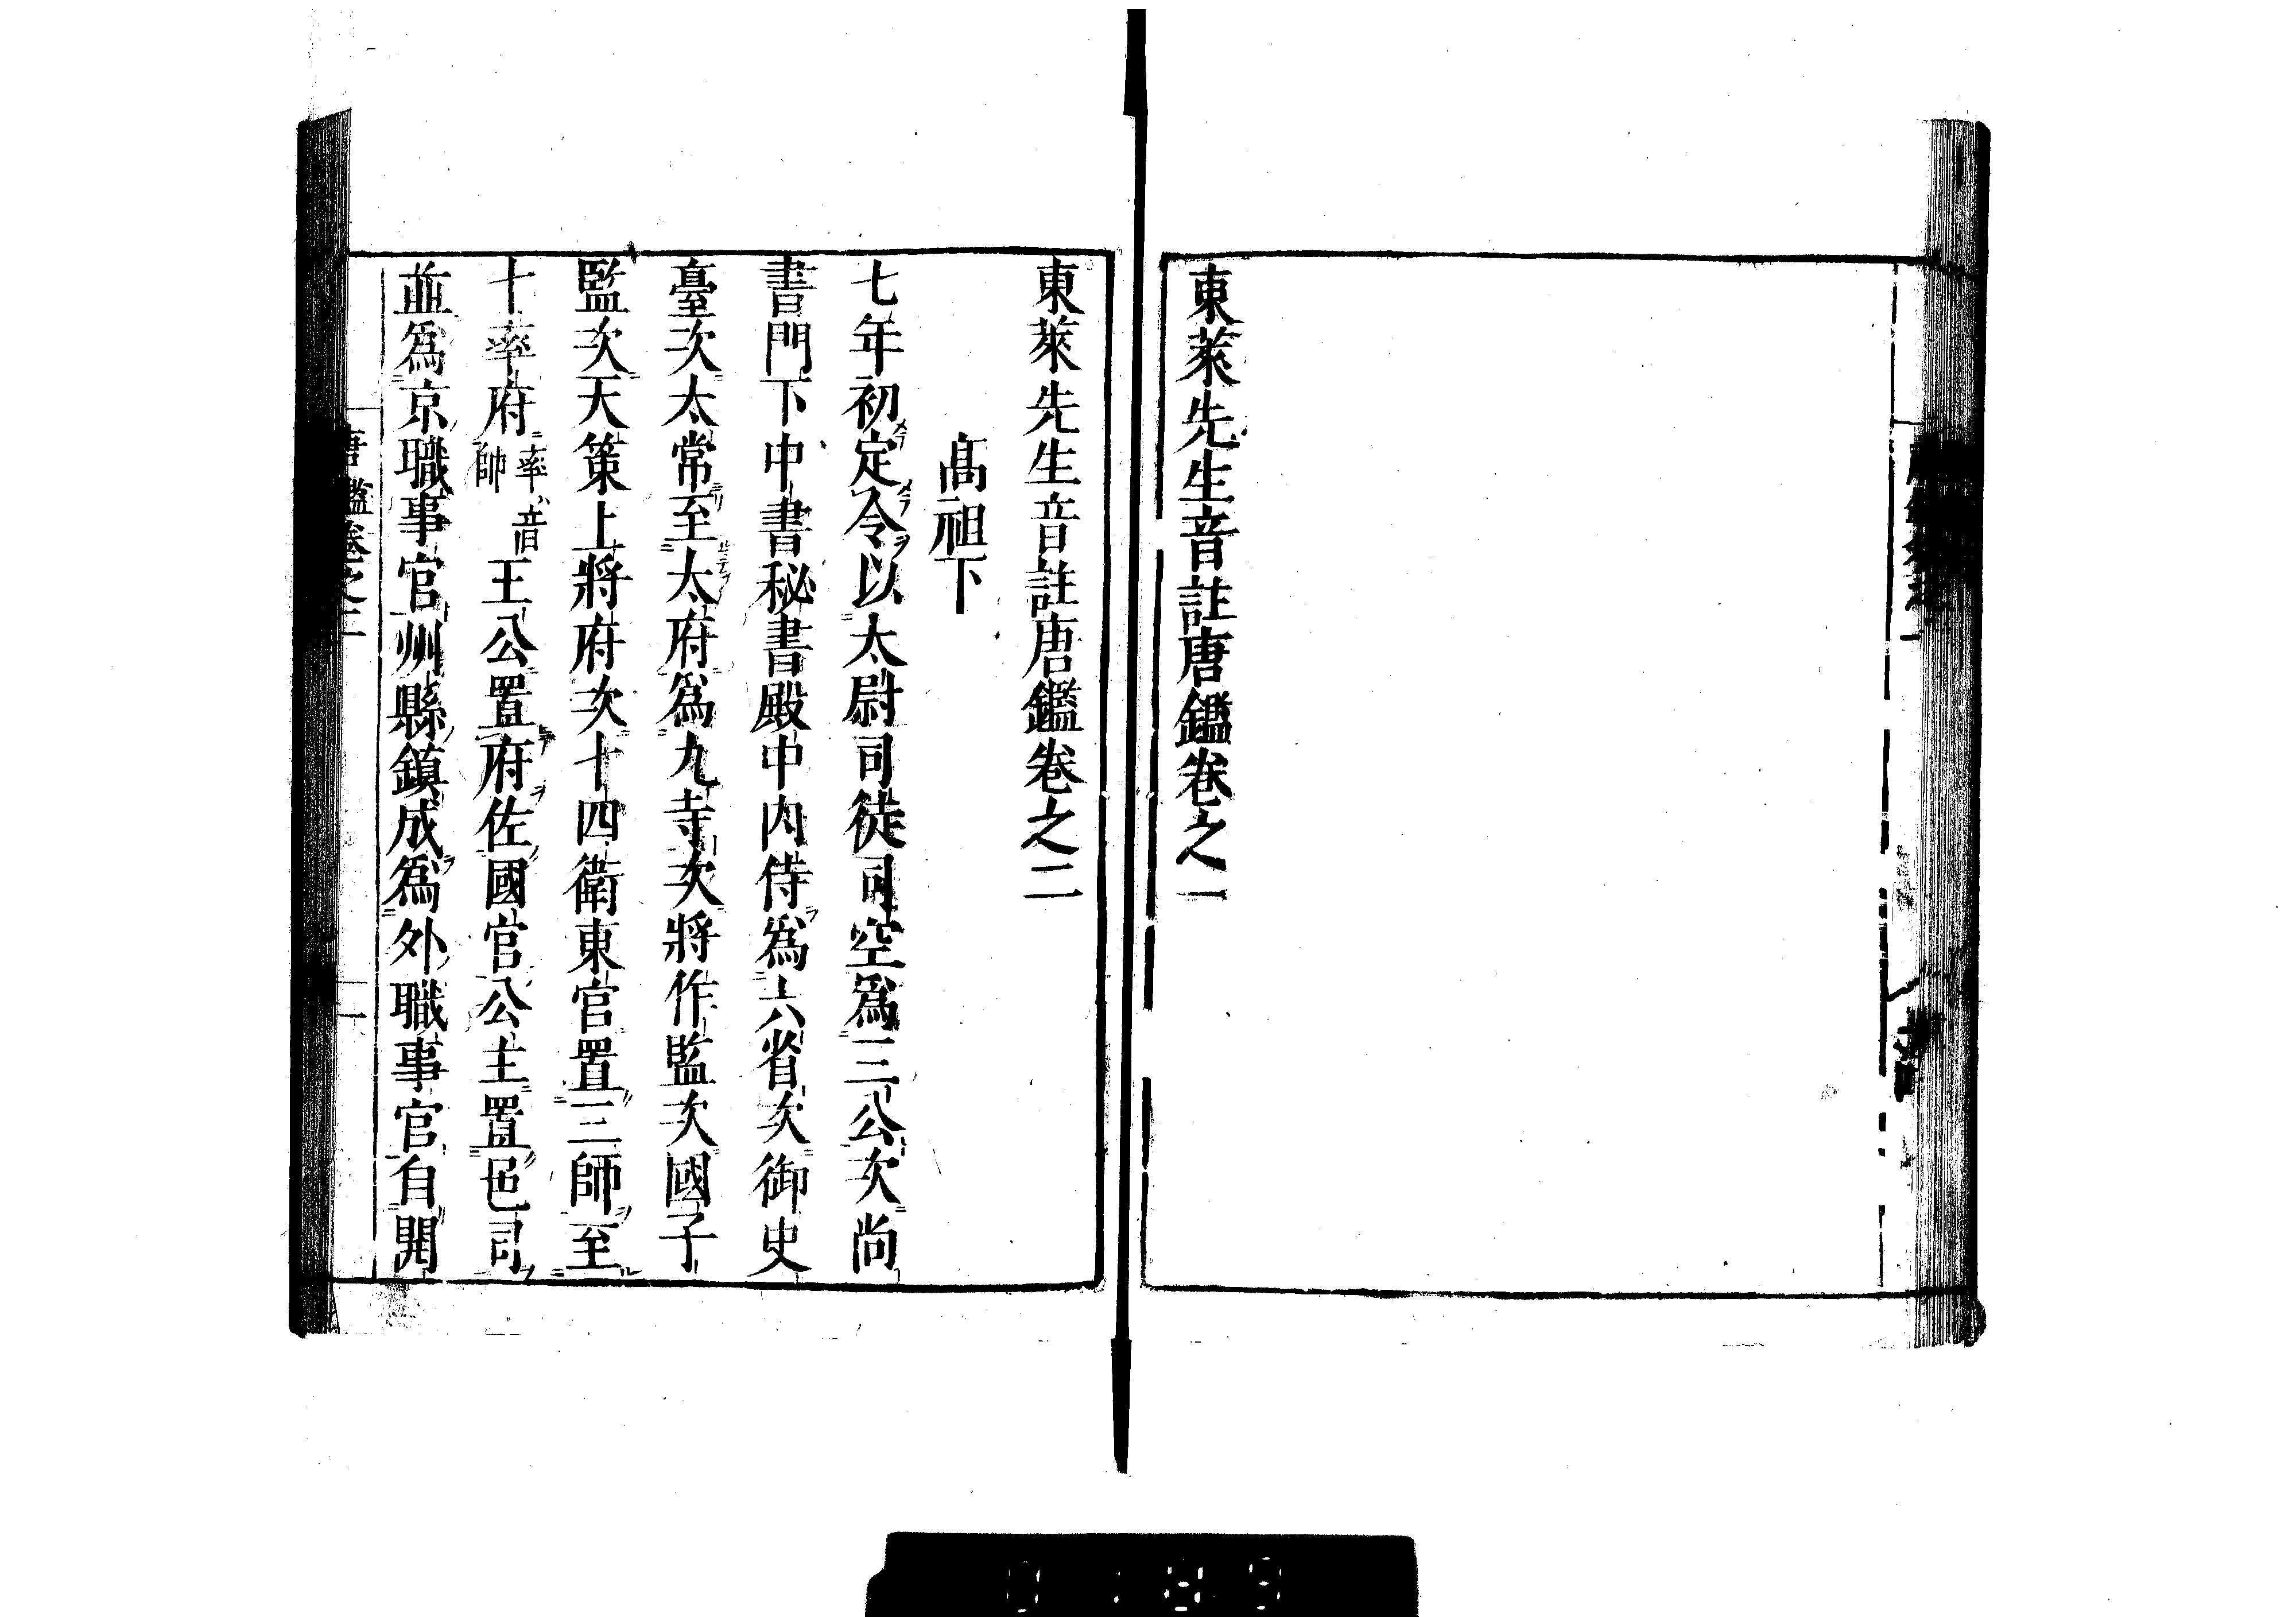 東萊先生音註唐鑑卷之一
東萊先生音註唐鑑卷之二
高祖下
七年初定令以太尉司徒司空爲三公次尚
書門下中書秘書殿中內侍爲六省次御史
臺次太常至太府爲九寺次將作監次國子
監次天策上將府次十四衛東官置三師至
十率府率音帥王公置府佐國官公主置邑司
並爲京職事官州縣鎮戍爲外職事官自開
唐鑑卷之二
一